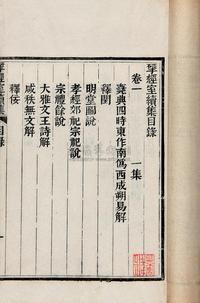 揅經室續集目錄
卷一　一集
堯典四時東作南偽西成朔易解
釋閏
明堂圖說
孝經郊祀宗祀說
宗禮餘說
大雅文王詩解
咸秩無文解
釋佞
揅經室續集
目錄